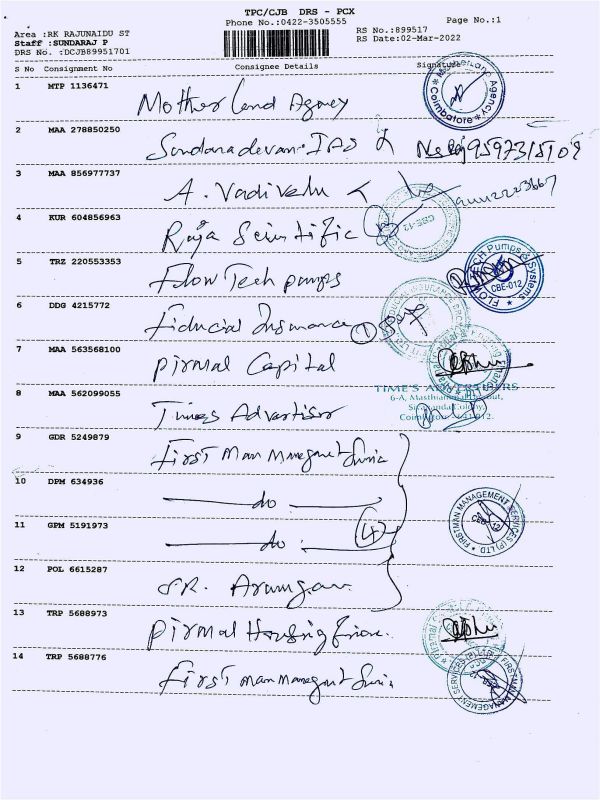 TPC/CJB DRS - PCX
Phone No.:0422-3505555
Page No.:1
Area :RK RAJUNAIDU ST
Staff :SUNDARAJ P
DRS No. :DCJB89951701
RS No.:899517
RS Date:02-Mar-2022
S No Consignment No Consignee Details Signature
1 MTP 1136471 Mother land Agency
Mother Land Agency * Coimbatore *
2 MAA 278850250 Sundaradevan. IAS
3 MAA 856977737 A. Vadivelu
4 KUR 604856963 Raja Scientific
CBE-12
5 TRZ 220553353 Flow Tech pumps
FLOW TECH Pumps & Systems CBE-012
6 DDG 4215772 Fiducial Insurance ①
7 MAA 563568100 Pirmal Capital
8 MAA 562099055 Times Advertiser
TIME'S ADVERTISERS
9 GDR 5249879 First Man Management
10 DPM 634936 do
11 GPM 5191973 do
④
FIRSTMAN MANAGEMENT SERVICES (P) LTD * CBE-12
12 POL 6615287
13 TRP 5688973 Pirmal Housing
14 TRP 5688776 First man Management
FIRSTMAN MANAGEMENT SERVICES (P) LTD